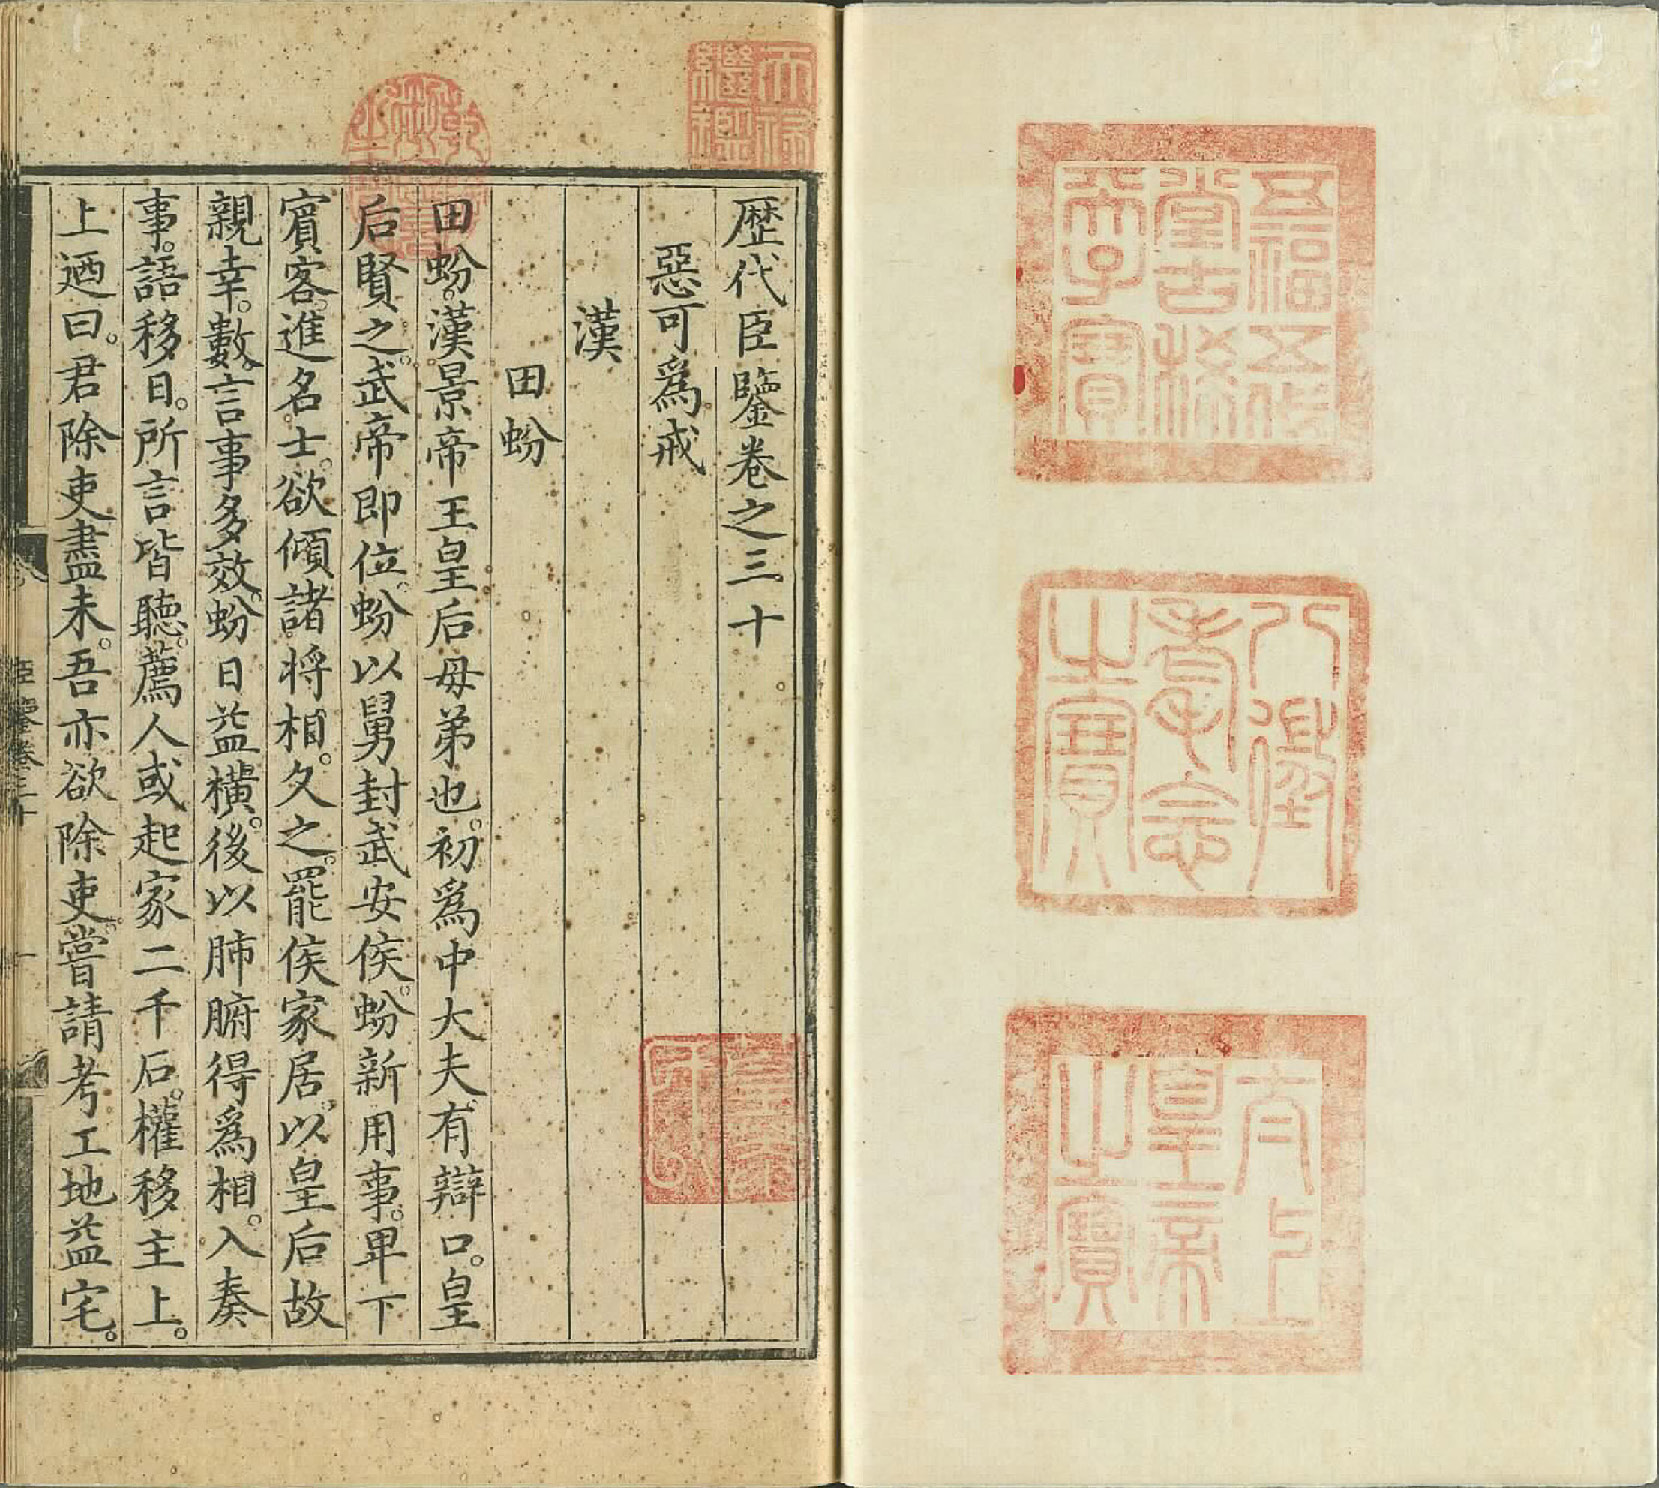 五福五代
堂古稀
天子寶
八徵
耄念
之寶
太上
皇帝
之寶
天祿
繼鑑
乾隆
御覽
之寶
歷代臣鑒卷之三十
惡可爲戒
漢
田蚡
田蚡。漢景帝王皇后母弟也。初爲中大夫。有辯口。皇
后賢之。武帝即位。蚡以舅封武安侯。蚡新用事。卑下
賓客。進名士。欲傾諸將相。久之。罷侯家居。以皇后故
親幸。數言事多效。蚡日益橫。後以肺腑得爲相。入奏
事。語移日。所言皆聽。薦人或起家二千石。權移主上。
上迺曰。君除吏盡未。吾亦欲除吏。嘗請考工地益宅。
臣鑒卷三十
一